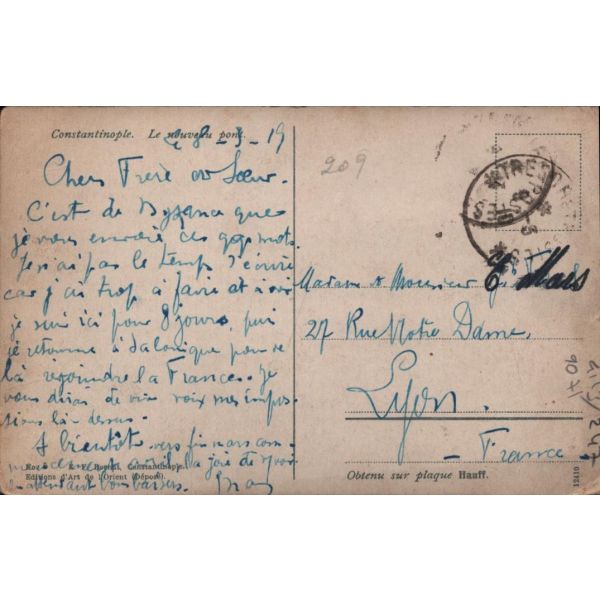 Constantinople. Le nouveau pont.
28-3-19
209
Chers Frère et Sœur.
C'est de Byzance que
je vous envoie ces qqs mots.
Je n'ai pas le temps d'écrire
car j'ai trop à faire et à voir
je suis ici pour 8 jours, puis
je retourne à Salonique pour de
là rejoindre la France. Je
vous dirai de vive voix mes impres-
sions là-dessus.
A bientôt vers fin mars com-
avril la joie de
en attendant bons baisers.
Constantinople.
Editions d'Art de l'Orient (Déposé).
POSTES
E. Mars
Madame & Monsieur
27 Rue Notre Dame,
Lyon.
- France -
Obtenu sur plaque Hauff.
12410